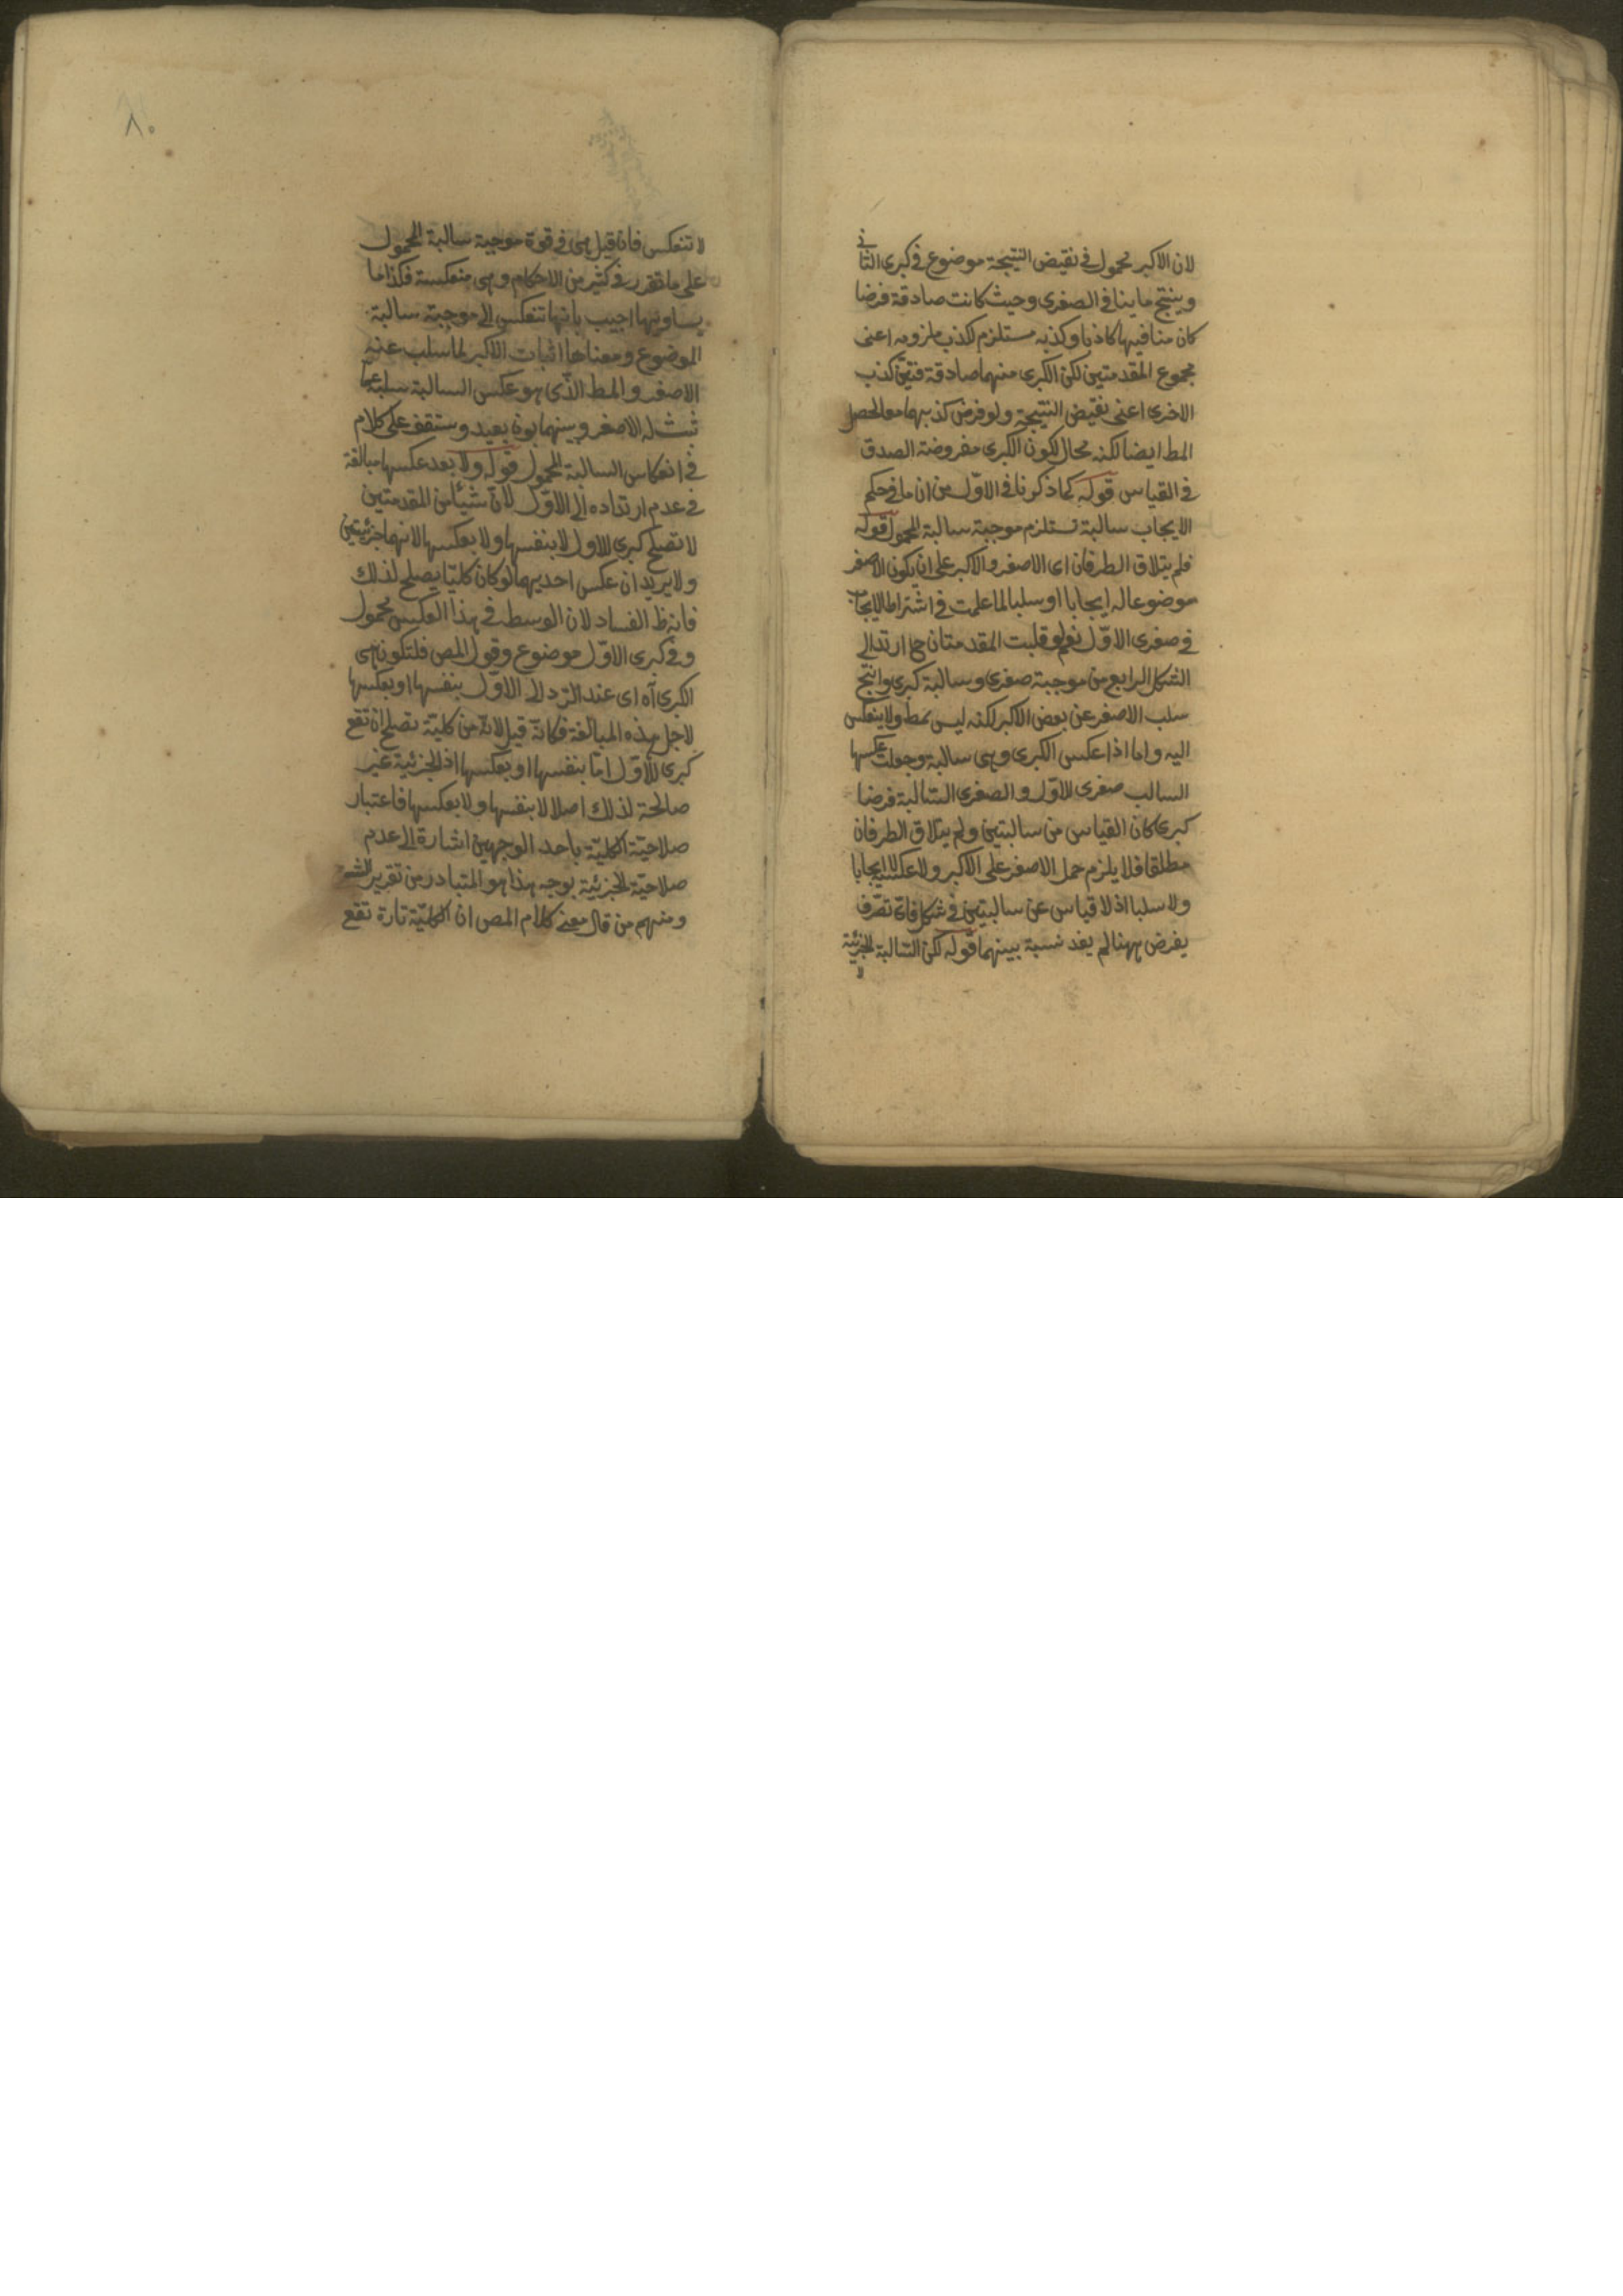 لان الاكبر محمول في نقيض النتيجة موضوع في كبرى الثاني
وينتج ما ينافي الصغرى وحيث كانت صادقة فرضا
كان منافيها كاذبا وكذبه مستلزم لكذب ملزومه اعنى
مجموع المقدمتين لكن الكبرى منهما صادقة فتعين كذب
الاخرى اعنى نقيض النتيجة ولو فرض كذبهما معا لحصل
المط ايضا لكنه محال لكون الكبرى مفروضة الصدق
في القياس قوله كما ذكرنا في الاوّل من ان ما في حكم
الايجاب سالبة تستلزم موجبة سالبة المحمول قوله
فلم يتلاق الطرفان اى الاصغر والاكبر على ان يكون الاصغر
موضوعا له ايجابا او سلبا لما علمت في اشتراط الايجاب
في صغرى الاوّل نعم لو قلبت المقدمتان ح ارتد الى
الشكل الرابع من موجبة صغرى وسالبة كبرى وانتج
سلب الاصغر عن بعض الاكبر لكنه ليس بمط ولا ينعكس
اليه واما اذا عكس الكبرى وهى سالبة وجعلت عكسها
السالب صغرى الاوّل والصغرى السالبة فرضا
كبرى كان القياس من سالبتين ولم يتلاق الطرفان
مطلقا فلا يلزم حمل الاصغر على الاكبر ولا عكسه ايجابا
ولا سلبا اذ لا قياس عن سالبتين في شكل فاىّ تصرّف
يفرض ههنا لم يفد نسبة بينهما قوله لكن السالبة الجزئية
لا
٨٠
لا تنعكس فان قيل هى في قوة موجبة سالبة المحمول
على ما تقرر في كثير من الاحكام وهى منعكسة فكذا ما
يساويها اجيب بانها تنعكس الى موجبة سالبة
الموضوع ومعناها اثبات الاكبر لما سلب عنه
الاصغر والمط الذى هو عكس السالبة سلبه عما
ثبت له الاصغر وبينهما بون بعيد وستقف على كلام
في انعكاس السالبة المحمول قوله ولا بعد عكسها مبالغة
في عدم ارتداده الى الاوّل لانّ شيئا من المقدمتين
لا تصلح كبرى للاول لا بنفسها ولا بعكسها لانهما جزئيتين
ولا يريد ان عكس احديهما لو كان كليّا يصلح لذلك
فانه ظ الفساد لان الوسط في هذا العكس محمول
وفي كبرى الاوّل موضوع وقول المص فلتكون هى
الكبرى آه اى عند الرّد الى الاوّل بنفسها او بعكسها
لاجل هذه المبالغة فكانّه قيل لانه من كليّة تصلح ان تقع
كبرى للأوّل امّا بنفسها او بعكسها اذ الجزئية غير
صالحة لذلك اصلا لا بنفسها ولا بعكسها فاعتبار
صلاحيّة الكليّة باحد الوجهين اشارة الى عدم
صلاحيّة الجزئية بوجه هذا هو المتبادر من تقرير الشرح
ومنهم من قال معنى كلام المص ان الكليّة تارة تقع